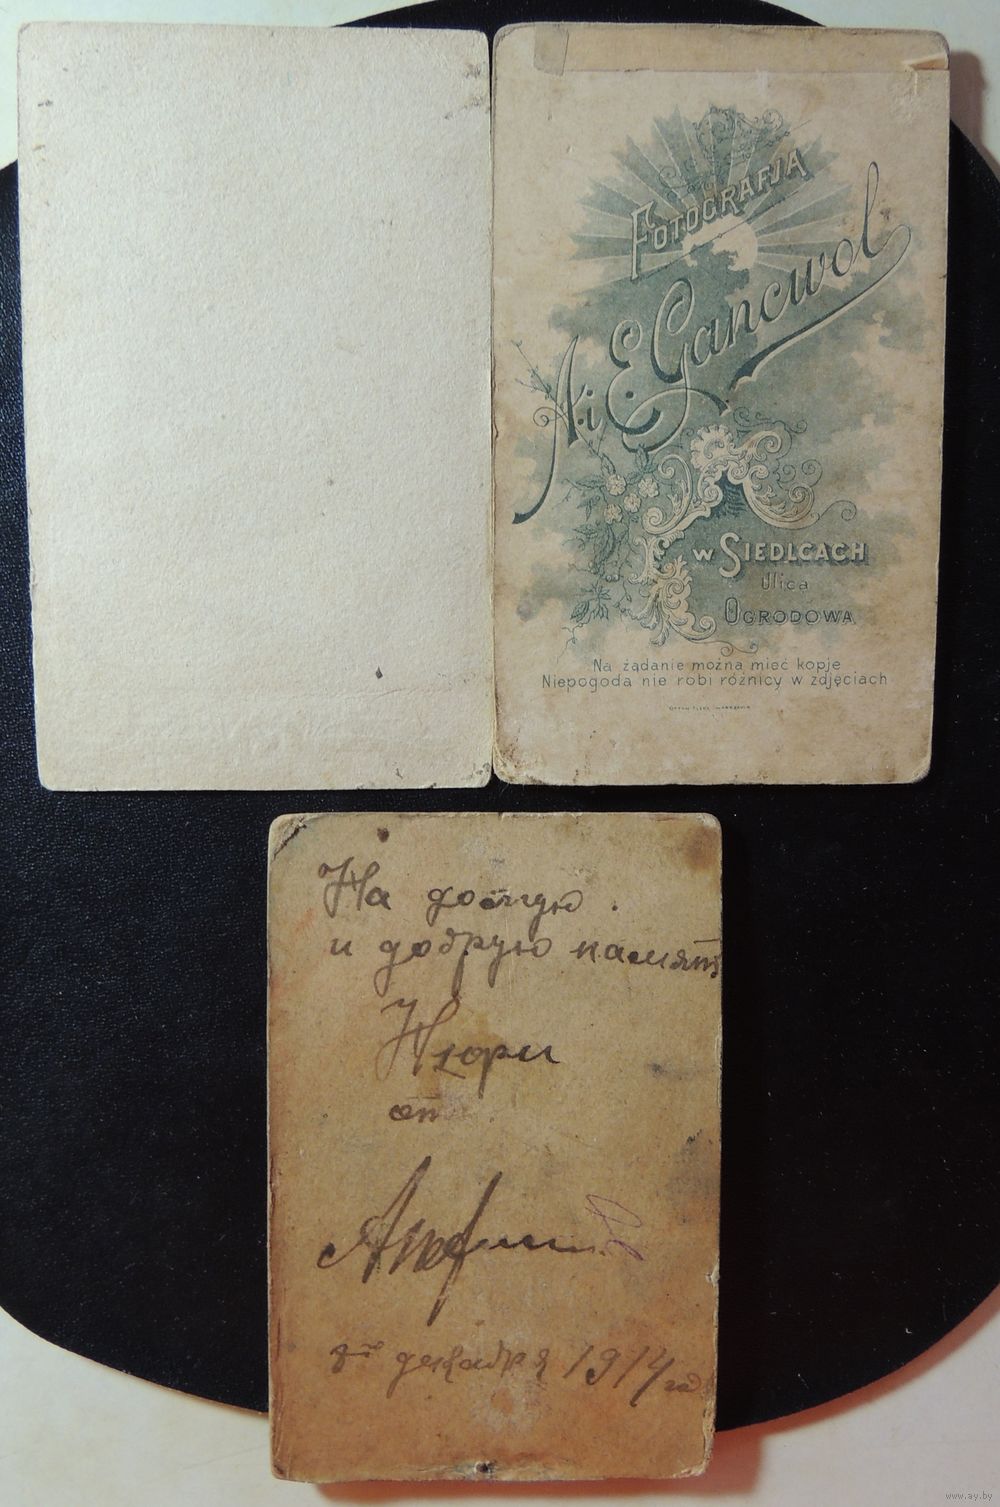 FOTOGRAFJA
A. i E. Gancwol
w SIEDLCACH
Ulica
OGRODOWA
Na żądanie można mieć kopje
Niepogoda nie robi różnicy w zdjęciach
На долгую
и добрую память
Нюри
от
8го декабря 1914 го
www.ay.by